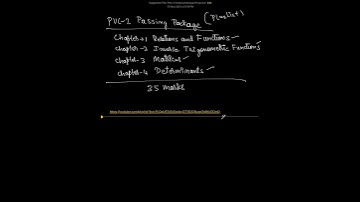 PUC-2 Passing Package (Plus list)
Chapter-1 Relations and Functions
Chapter-2 Inverse Trigonometric Functions
Chapter-3 Matrices
Chapter-4 Determinants
35 marks